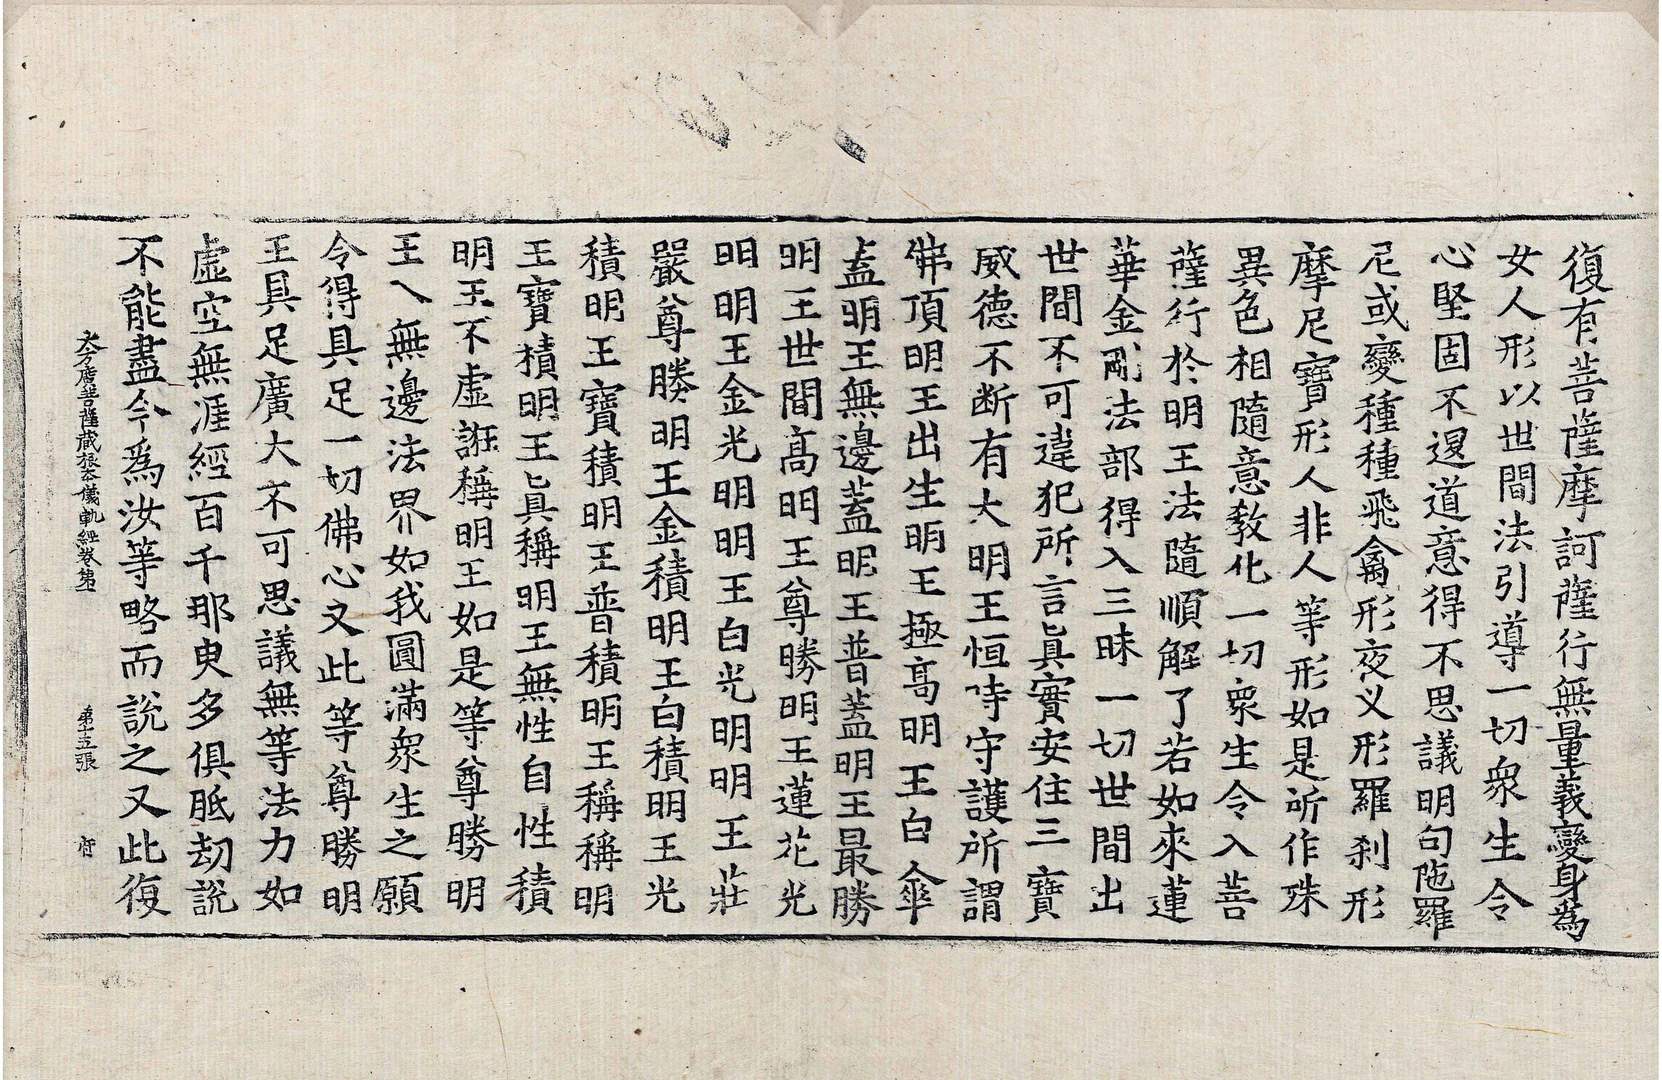 復有菩薩摩訶薩行無量義變身為
女人形以世間法引導一切衆生令
心堅固不退道意得不思議明句陁羅
尼或變種種飛禽形夜义形羅剎形
摩尼寶形人非人等形如是所作殊
異色相隨意教化一切衆生令入菩
薩行於明王法隨順解了若如來蓮
華金剛法部得入三昧一切世間出
世間不可違犯所言眞實安住三寶
威德不断有大明王恒時守護所謂
佛頂明王出生明王極高明王白傘
盖明王無邊蓋明王普蓋明王最勝
明王世間高明王尊勝明王蓮花光
明明王金光明明王白光明明王莊
嚴尊勝明王金積明王白積明王光
積明王寶積明王普積明王稱稱明
王寶積明王眞稱明王無性自性積
明王不虛誑稱明王如是等尊勝明
王入無邊法界如我圓滿衆生之願
令得具足一切佛心又此等尊勝明
王具足廣大不可思議無等法力如
虛空無涯經百千那臾多俱胝劫說
不能盡今為汝等略而說之又此復
大方廣菩薩藏根本儀軌經卷第一
第十五張
府